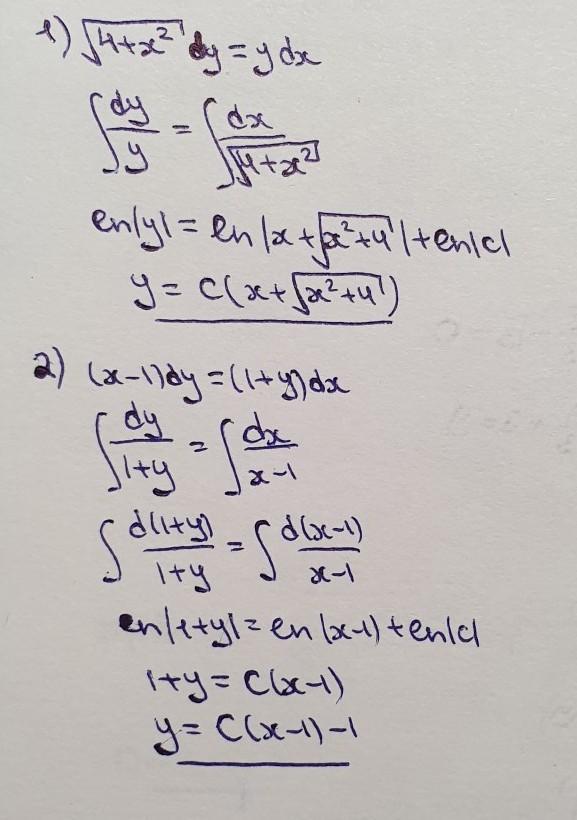 1) √(4+x²) dy = y dx
∫ dy/y = ∫ dx/√(4+x²)
ln|y| = ln|x + √(x²+4)| + ln|c|
y = C(x + √(x²+4))
2) (x-1)dy = (1+y)dx
∫ dy/(1+y) = ∫ dx/(x-1)
∫ d(1+y)/(1+y) = ∫ d(x-1)/(x-1)
ln|1+y| = ln|x-1| + ln|c|
1+y = C(x-1)
y = C(x-1)-1